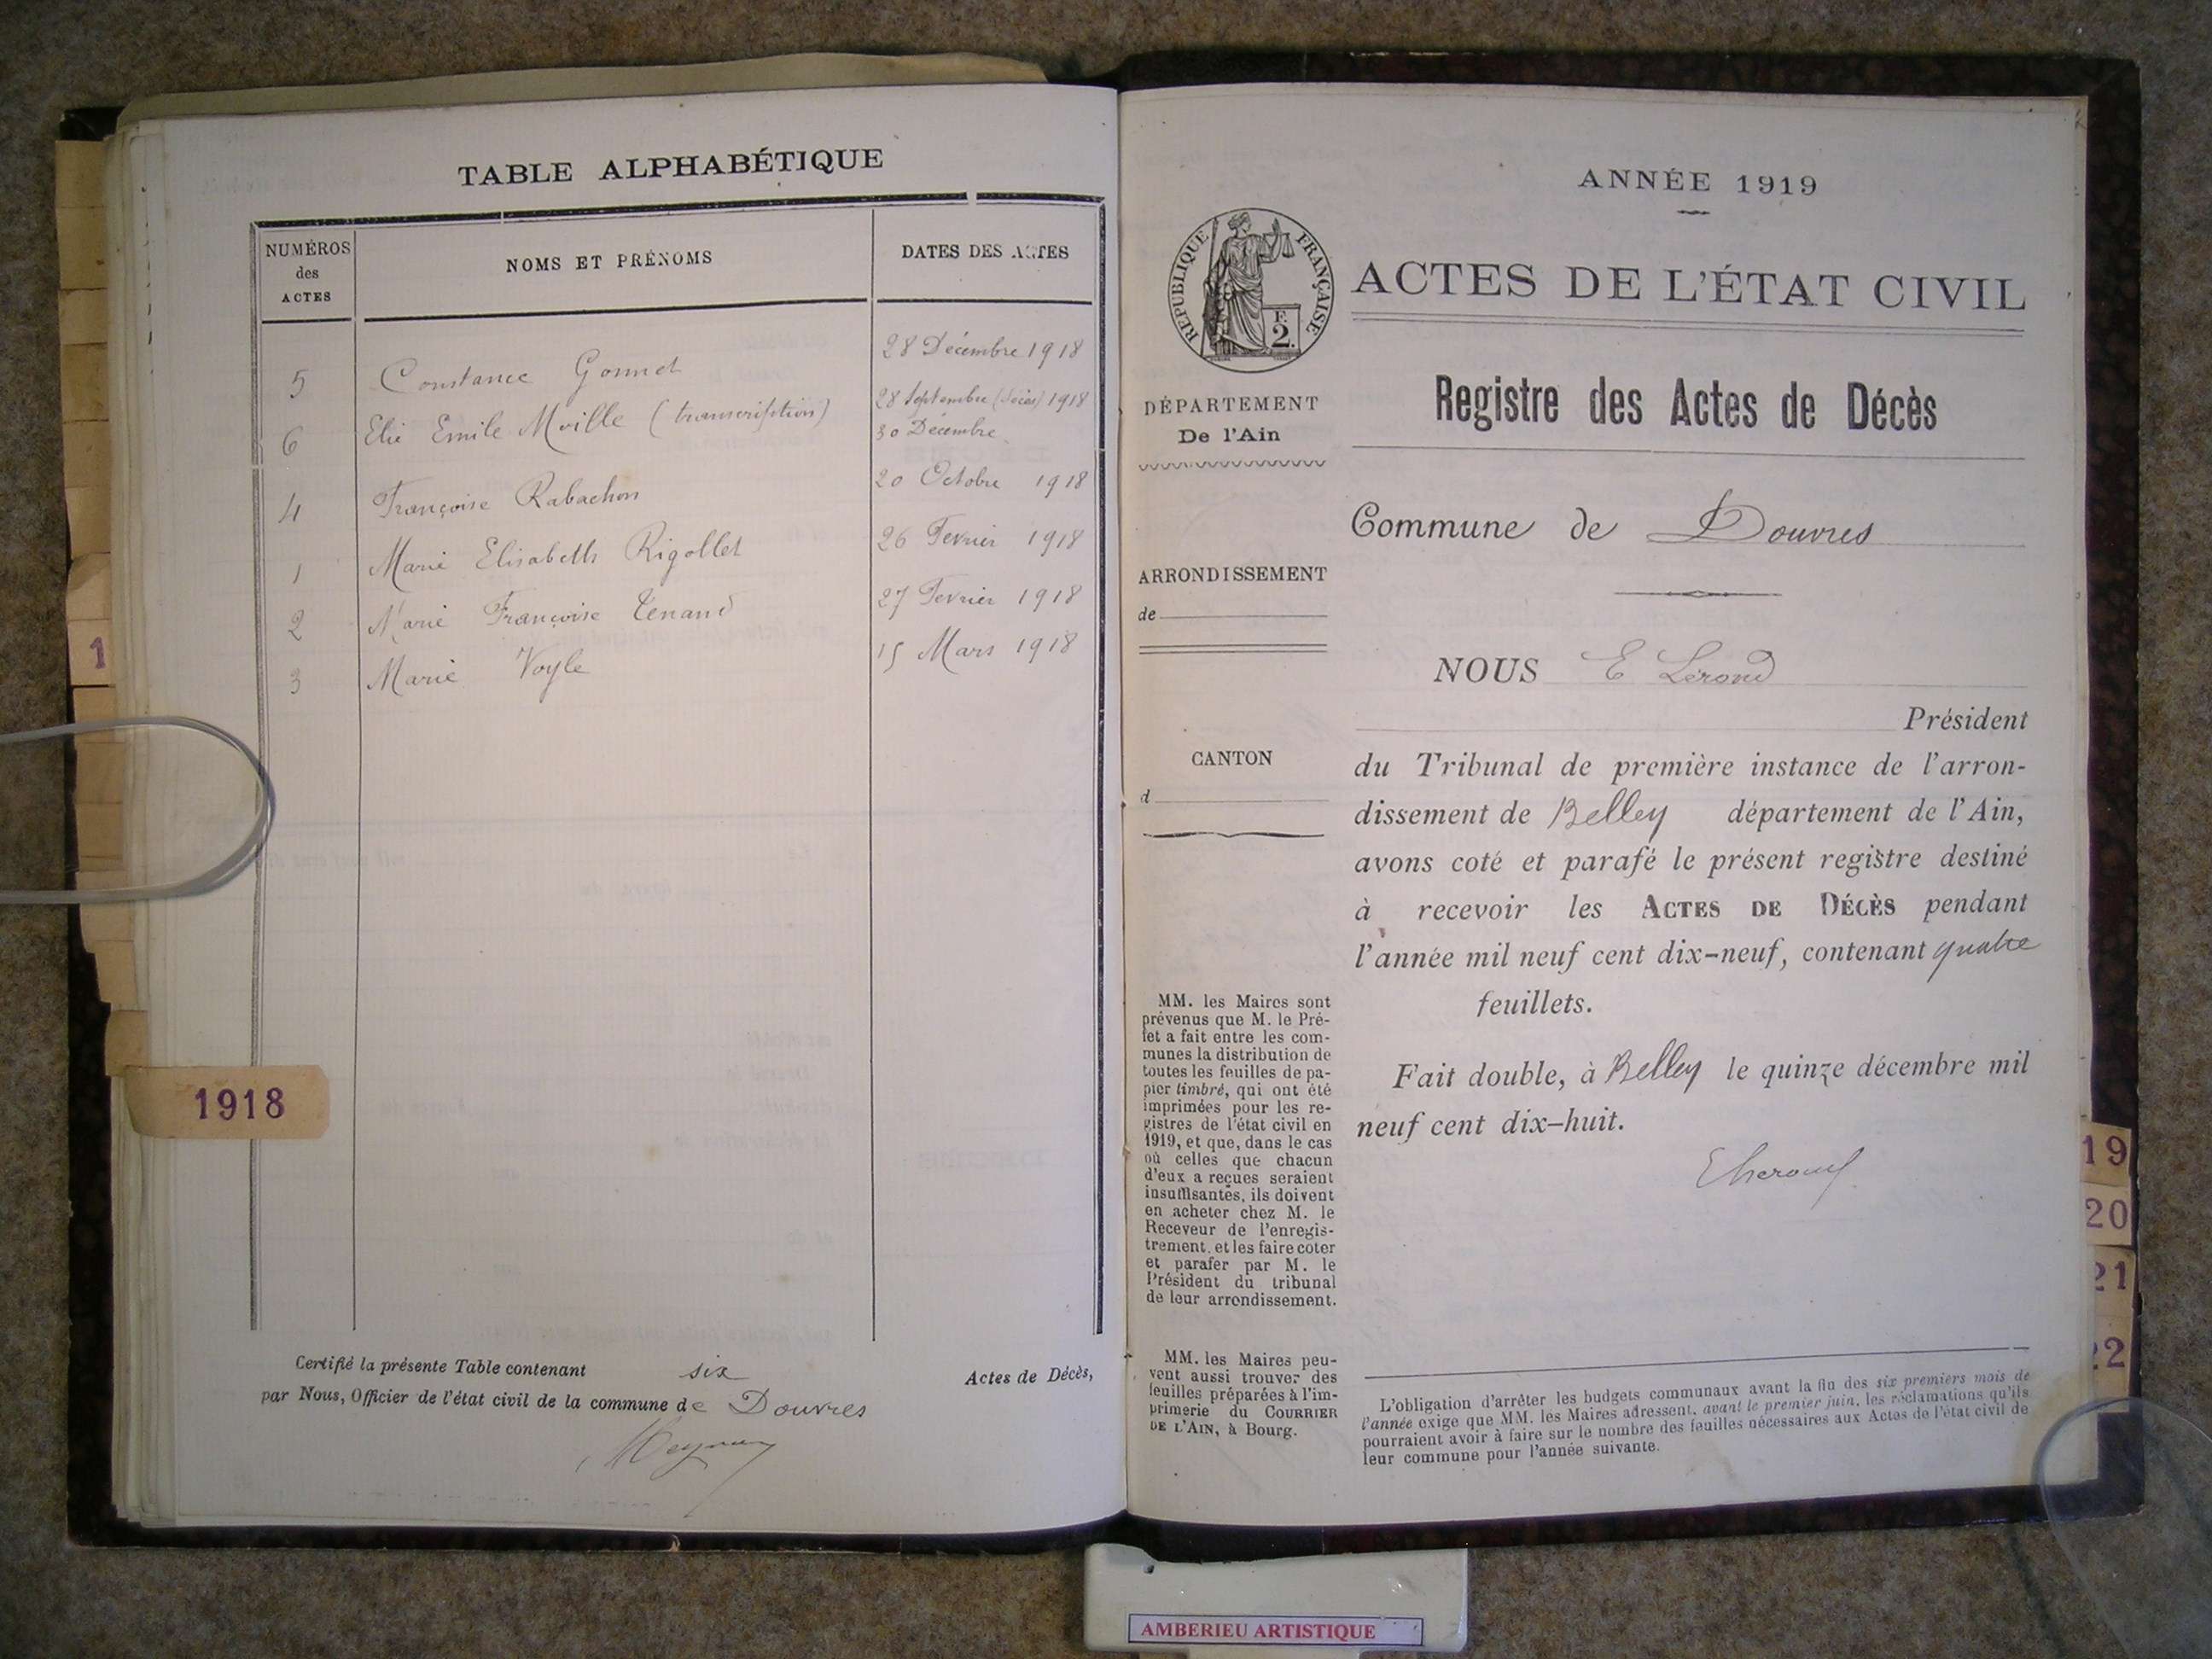 TABLE ALPHABÉTIQUE
NUMÉROS des ACTES
NOMS ET PRÉNOMS
DATES DES ACTES
5 Constance Gonnet 28 Décembre 1918
6 Elie Emile Mville (transcription) 28 Septembre (décès) 1918
30 Décembre
4 Françoise Rabachon 20 Octobre 1918
1 Marie Elisabeth Rigollet 26 Fevrier 1918
2 Marie Françoise Tenand 27 Fevrier 1918
3 Marie Voyle 15 Mars 1918
Certifié la présente Table contenant six Actes de Décès,
par Nous, Officier de l'état civil de la commune de Douvres
1
1918
ANNÉE 1919
RÉPUBLIQUE FRANÇAISE
F.
2.
ACTES DE L'ÉTAT CIVIL
Registre des Actes de Décès
DÉPARTEMENT
De l'Ain
Commune de Douvres
ARRONDISSEMENT
de
NOUS E Lerond
Président
CANTON
d
du Tribunal de première instance de l'arron-
dissement de Belley département de l'Ain,
avons coté et parafé le présent registre destiné
à recevoir les ACTES DE DÉCÈS pendant
l'année mil neuf cent dix-neuf, contenant quatre
feuillets.
Fait double, à Belley le quinze décembre mil
neuf cent dix-huit.
MM. les Maires sont
prévenus que M. le Pré-
fet a fait entre les com-
munes la distribution de
toutes les feuilles de pa-
pier timbré, qui ont été
imprimées pour les re-
gistres de l'état civil en
1919, et que, dans le cas
où celles que chacun
d'eux a reçues seraient
insuffisantes, ils doivent
en acheter chez M. le
Receveur de l'enregis-
trement, et les faire coter
et parafer par M. le
Président du tribunal
de leur arrondissement.
MM. les Maires peu-
vent aussi trouver des
feuilles préparées à l'im-
primerie du COURRIER
DE L'AIN, à Bourg.
L'obligation d'arrêter les budgets communaux avant la fin des six premiers mois de
l'année exige que MM. les Maires adressent, avant le premier juin, les réclamations qu'ils
pourraient avoir à faire sur le nombre des feuilles nécessaires aux Actes de l'état civil de
leur commune pour l'année suivante.
19
20
21
22
AMBERIEU ARTISTIQUE